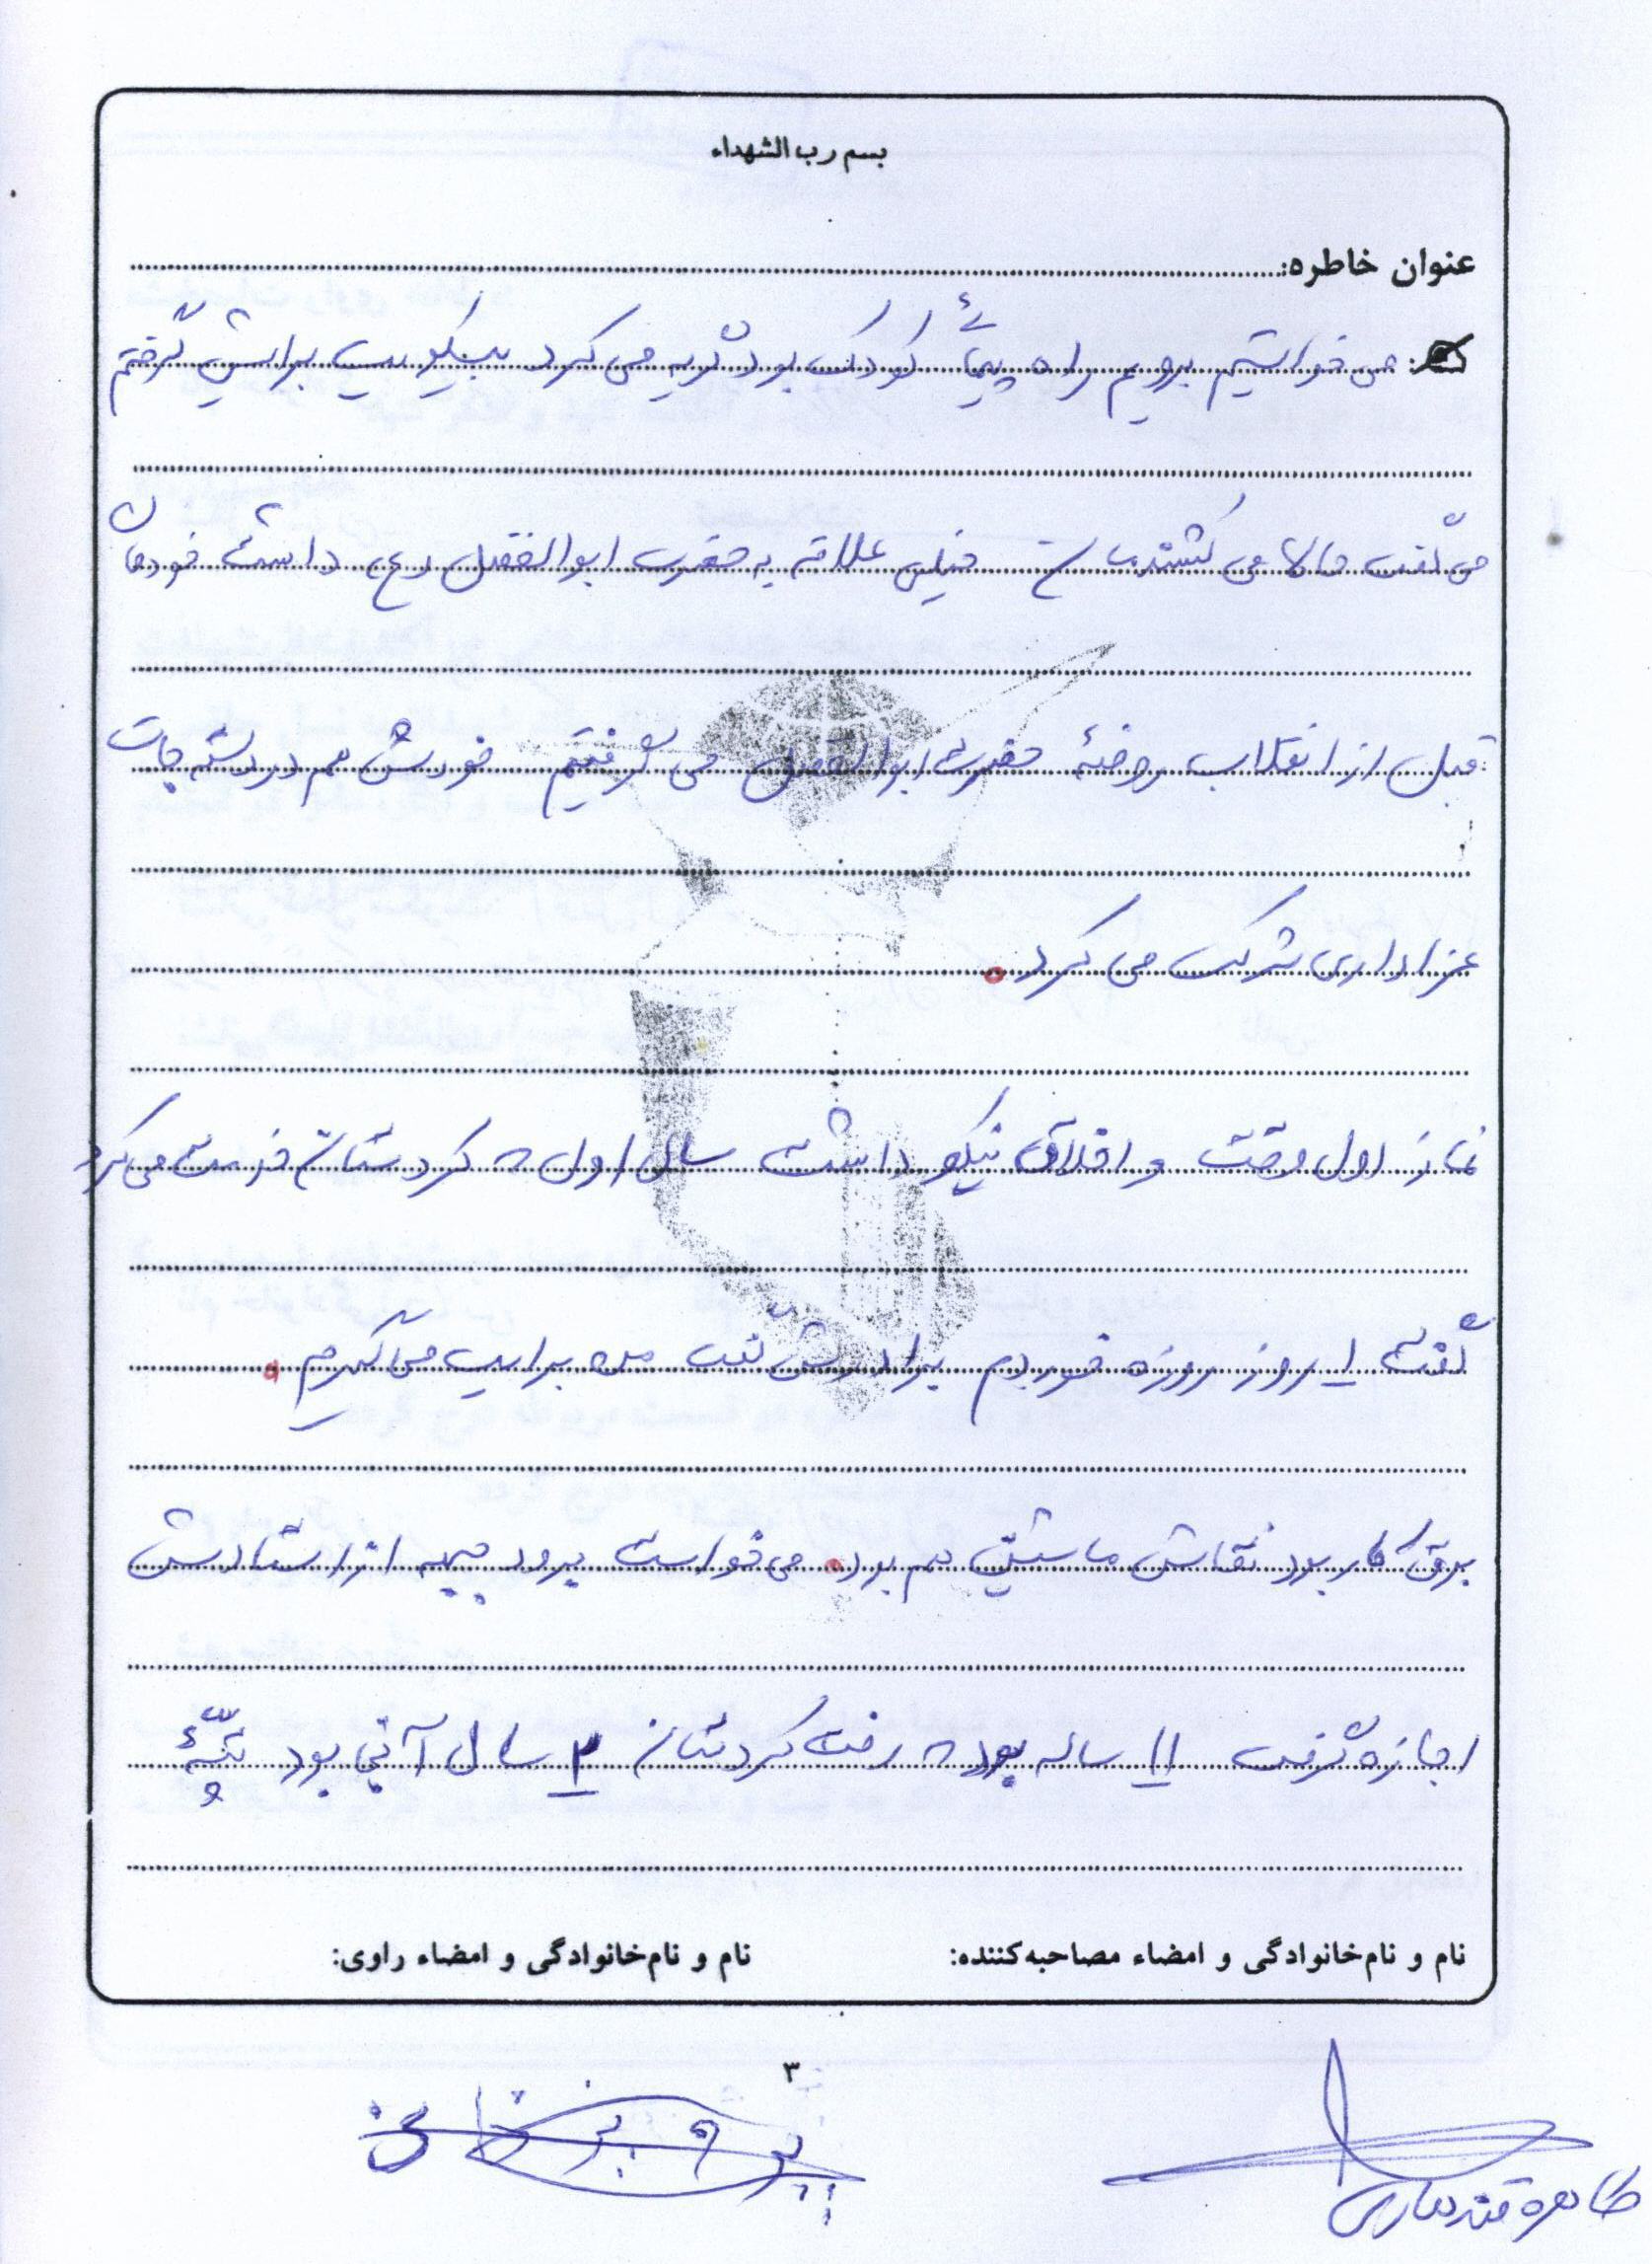 بسم رب الشهداء
عنوان خاطره:
می خواستیم برویم راه پیمائی کودک بود گریه می کرد بیسکویت برایش گرفتم
می گفت حالا می کشندمان خیلی علاقه به حضرت ابوالفضل (ع) داشت خودمان
قبل از انقلاب روضهٔ حضرت ابوالفضل می گرفتیم خودش هم در دسته جات
عزاداری شرکت می کرد.
نماز اول وقت و اخلاق نیکو داشت سال اول کردستان خدمت می کرد
گفت ۱ روز روزه خوردم برادرش گفت من برایت می گیرم.
برق کار بود نقاش ماشین هم بود. می خواست برود جبهه از استادش
اجازه گرفت ۱۱ ساله بود رفت کردستان ۲ سال آنجا بود تپّهٔ
نام و نام‌خانوادگی و امضاء مصاحبه‌کننده:
نام و نام‌خانوادگی و امضاء راوی:
۳
طاهره قندهاری